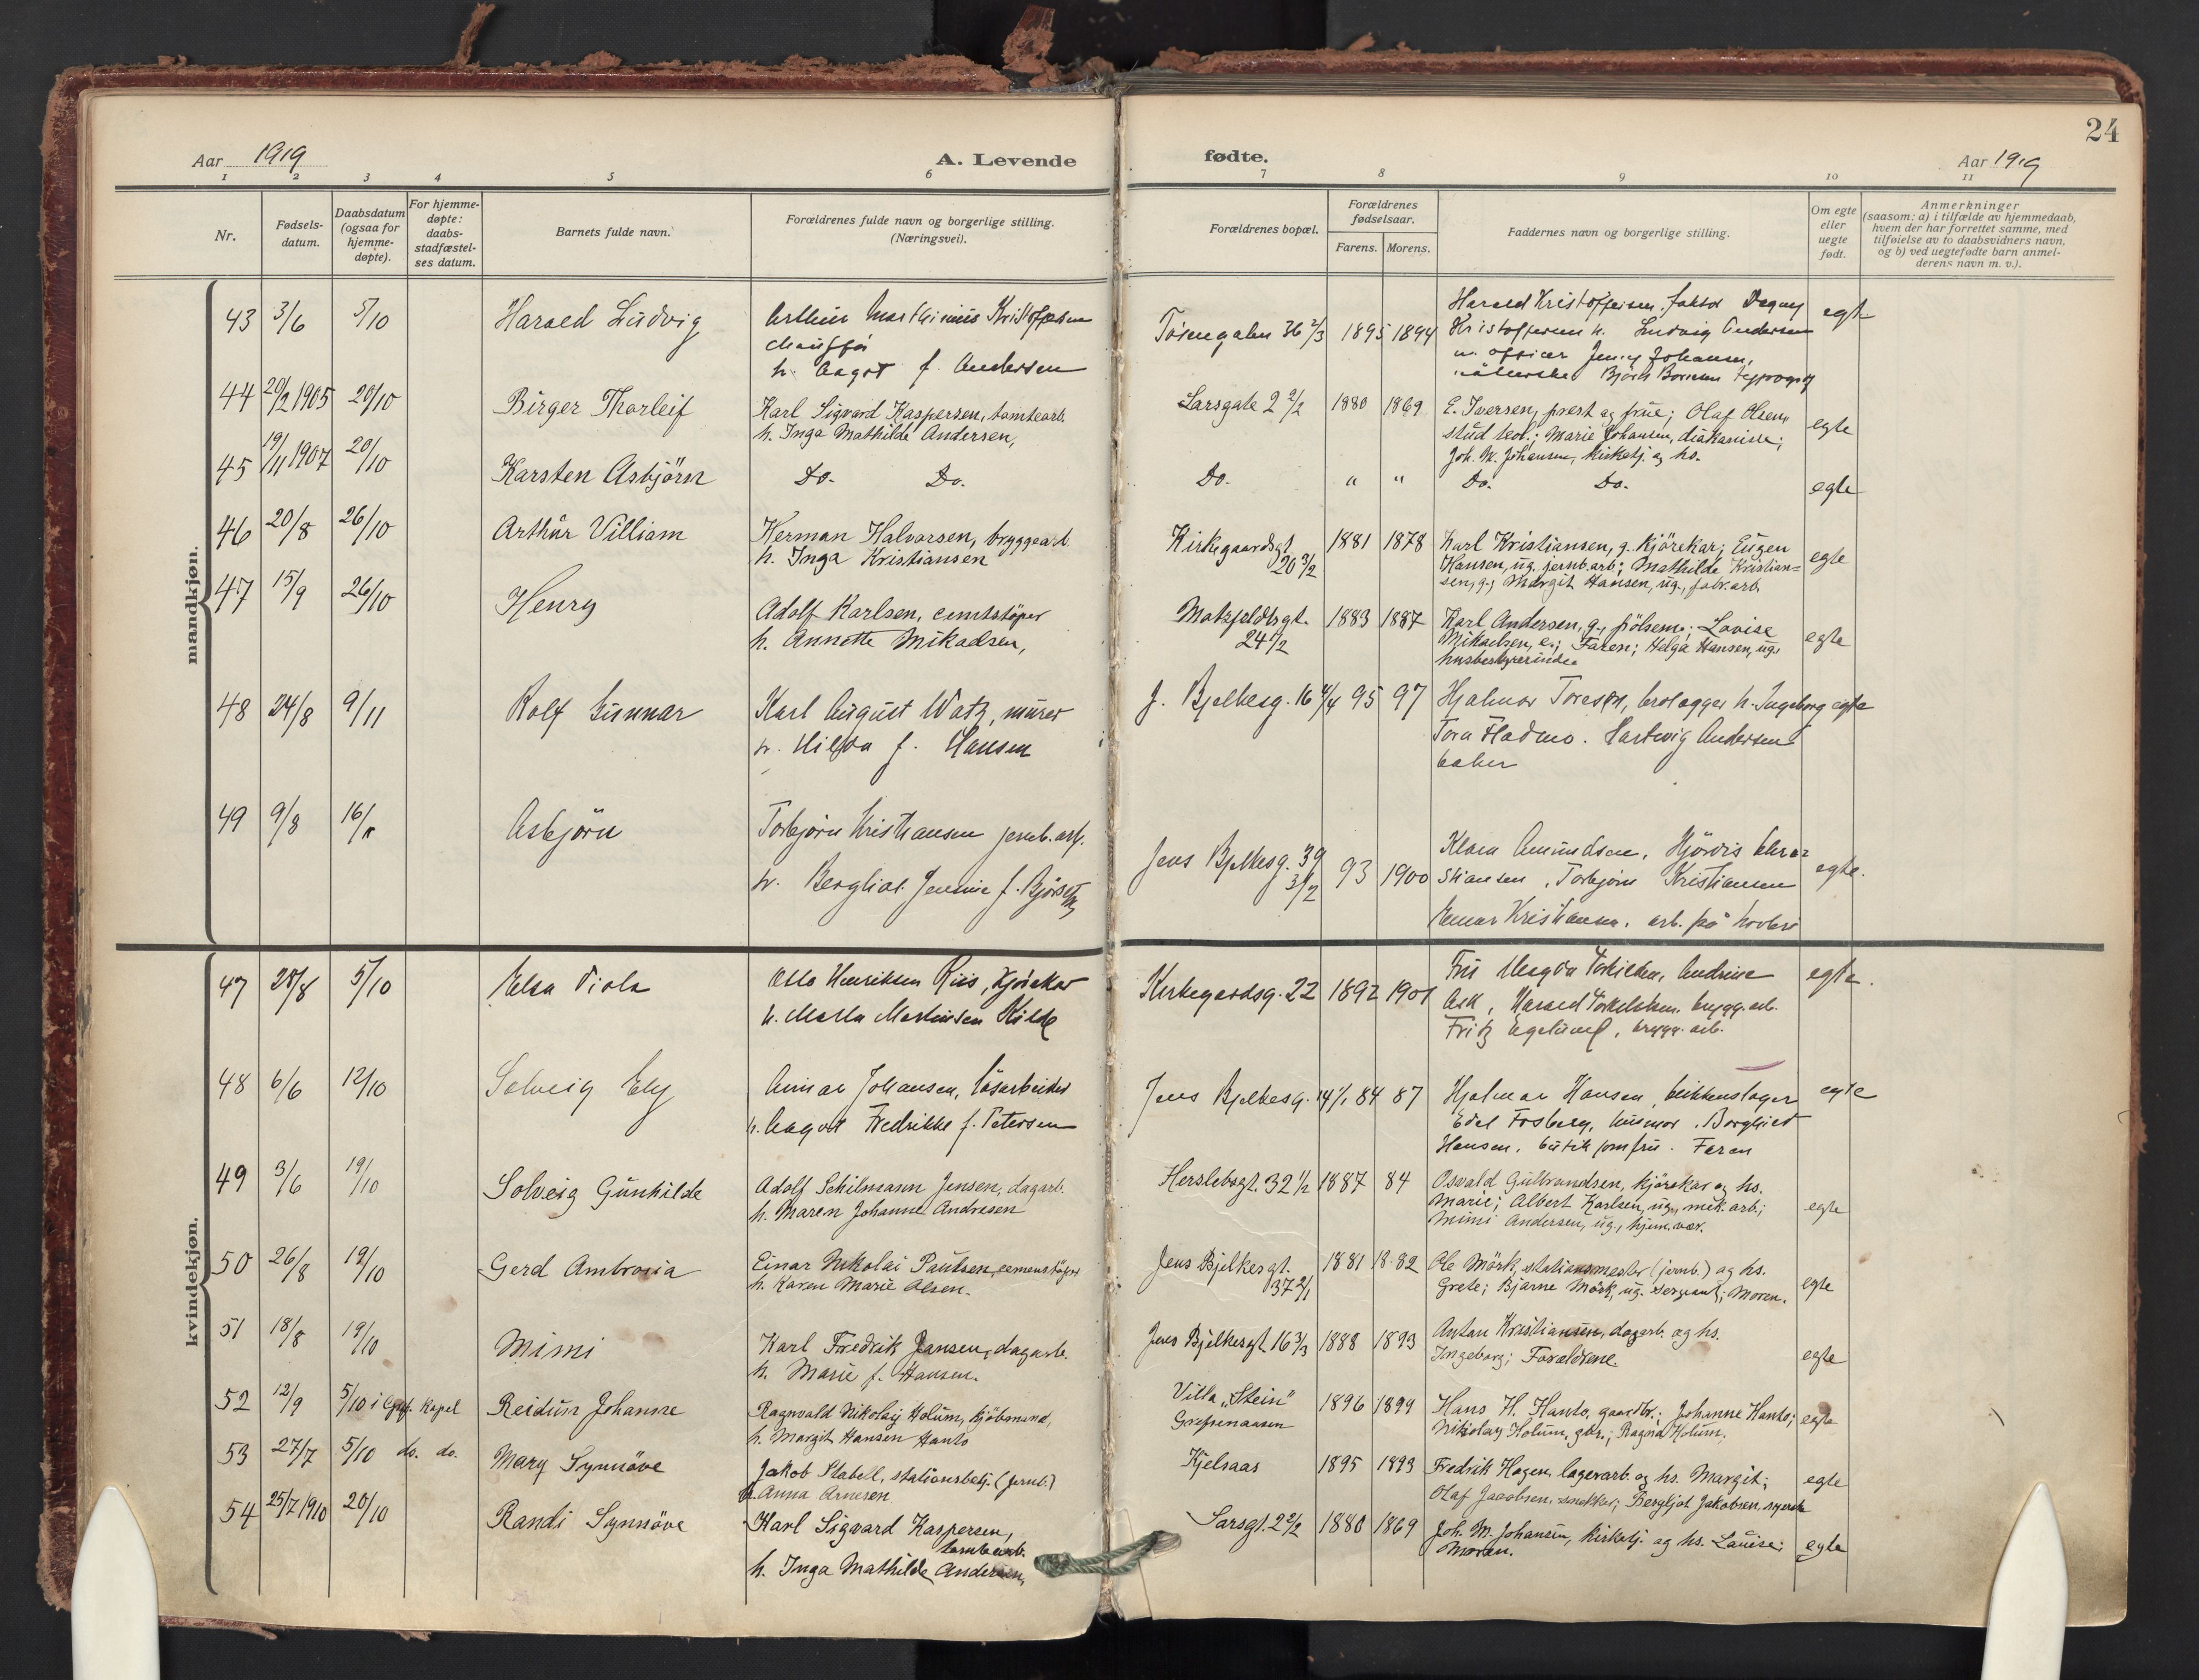 24
Aar 1919
A. Levende
fødte.
Aar 1919
1 2 3 4 5 6 7 8 9 10 11
Nr.
Fødsels-
datum.
Daabsdatum
(ogsaa for
hjemme-
døpte).
For hjemme-
døpte:
daabs-
stadfæstel-
ses datum.
Barnets fulde navn.
Forældrenes fulde navn og borgerlige stilling.
(Næringsvei).
Forældrenes bopæl.
Forældrenes
fødselsaar.
Farens. Morens.
Faddernes navn og borgerlige stilling.
Om egte
eller
uegte
født.
Anmerkninger
(saasom: a) i tilfælde av hjemmedaab,
hvem der har forrettet samme, med
tilføielse av to daabsvidners navn,
og b) ved uegtefødte barn anmel-
derens navn m. v.).
mandkjøn.
43 3/6 5/10 Harald Ludvig
Kristoffersen
h. Aagot f. Andersen
36 2/3 1895 1894
Harald Kristoffersen, faktor Dagny
Kristoffersen h. Ludvig Andersen
u. officer Jenny Johansen,
Bjørn typograf
egte
44 20/2 1905 20/10 Birger Thorleif
Karl Sigvard Kaspersen, tomtearb.
h. Inga Mathilde Andersen,
Sarsgate 2 2/2 1880 1869
E. Iversen, prest og frue; Olaf Olsen,
stud. teol.; Marie Johansen, diakonisse;
Joh. M. Johansen, kirketj. og hs.
egte
45 19/11 1907 20/10 Karsten Asbjörn
Do. Do.
Do. " " Do. Do. egte
46 20/8 26/10 Arthur Villiam
Herman Halvorsen, bryggearb.
h. Inga Kristiansen
Kirkegaardsgt.
20 3/2 1881 1878
Karl Kristiansen, g. kjörekar; Eugen
Hansen, ug. jernb.arb.; Mathilde Kristian-
sen, g.; Margit Hansen, ug., fabr.arb.
egte
47 15/9 26/10 Henry
Adolf Karlsen, cemtstöper
h. Annette Mikaelsen,
24 1/2 1883 1887
Karl Andersen, g., pölsem.; Lovise
Mikaelsen, e.; Faren; Helga Hansen, ug.
husbestyrerinde.
egte
48 24/8 9/11 Rolf Gunnar
Karl August Watz, murer
h. Hilda f. Hansen
J. Bjelkesg. 16 4/4 95 97
Hjalmar Toresen, brolegger h. Ingeborg egte
Tora Fladmo. Hartwig Andersen
baker
49 9/8 16/11 Asbjörn
Torbjørn Kristiansen jernb. arb.
h. Bergliot Jennie f.
Jens Bjelkesg. 39
3/2 93 1900
Klara Amundsen, Hjördis Kri-
stiansen, Torbjørn Kristiansen
Einar Kristiansen, arb. på
egte.
kvindekjøn.
47 28/8 5/10 Elsa Viola
Otto Henriksen Riis, Kjørekar
h. Martha Martinsen Kilde
Kirkegardsg. 22 1892 1901
Fru Magda Torkildsen, Andrine
Ask, Harald bryg. arb.
Fritz Egelund, brygg. arb.
egte.
48 6/6 12/10 Solveig Ely
Johansen, løsarbeider
h. Aagot Fredrikke f. Petersen
Jens Bjelkesg. 14 1/1 84 87
Hjalmar Hansen, blikkenslager
Edel Fosberg, husmor. Borghild
Hansen, butik jomfru. Faren
egte
49 3/6 19/10 Solveig Gunhilde
Adolf Schilmann Jensen, dagarb.
h. Maren Johanne Andresen
Herslebsgt. 32 1/2 1887 84
Osvald Gulbrandsen, kjørekar og hs.
Marie; Albert Karlsen, ug., mek. arb.;
Mimi Andersen, ug., hjem. vær.
egte
50 26/8 19/10 Gerd Ambrosia
Einar Nikolai Paulsen, cementstøper
h. Karen Marie Olsen.
Jens Bjelkesgt.
37 2/1 1881 1882
Ole Mörk, stationsmester (jernb.) og hs.
Grete; Bjarne Mörk, ug. sergeant; Moren.
egte
51 18/8 19/10 Mimi
Karl Fredrik Jansen, dagarb.
h. Marie f. Hansen.
Jens Bjelkesgt. 16 3/3 1888 1893
Anton Kristiansen, dagarb. og hs.
Ingeborg; Forældrene.
egte
52 12/9 5/10 i Gref. kapel Reidun Johanne
Ragnvald Nikolay Holum, kjöbmand,
h. Margit Hansen Hanto
Villa "Stein"
Grefsenaasen 1896 1899
Hans H. Hanto, gaardbr.; Johanne Hanto;
Nikolay Holum, gbr.; Ragna Holum.
egte
53 27/7 5/10 do. do. Mary Synnöve
Jakob Stabell, stationsbetj. (jernb.)
h. Anna Arnesen
Kjelsaas 1895 1893
Fredrik Hagen, lagerarb. og hs. Margit;
Olaf Jacobsen, snekker; Bergljot Jakobsen, syerske
egte
54 25/7 1910 20/10 Randi Synnöve
Karl Sigvard Kaspersen,
tomtearb.
h. Inga Mathilde Andersen,
Sarsgt. 2 2/2 1880 1869
Joh. M. Johansen, kirketj. og hs. Louise;
Moren.
egte